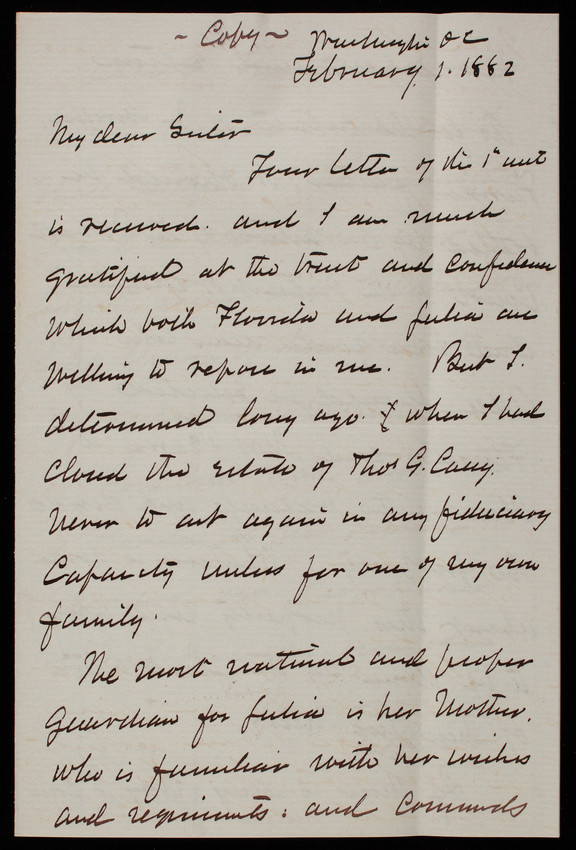 ~ Copy ~
Washington DC
February 1. 1882
My dear Sister
Your letter of the 1st inst
is received. and I am much
gratified at the trust and confidence
which both Florida and Julia are
willing to repose in me. But I.
determined long ago. & when I had
closed the estate of Thos G. Casey.
never to act again in any fiduciary
Capacity unless for one of my own
family.
The most natural and proper
guardian for Julia is her Mother.
who is familiar with her wishes
and requirements: and commands